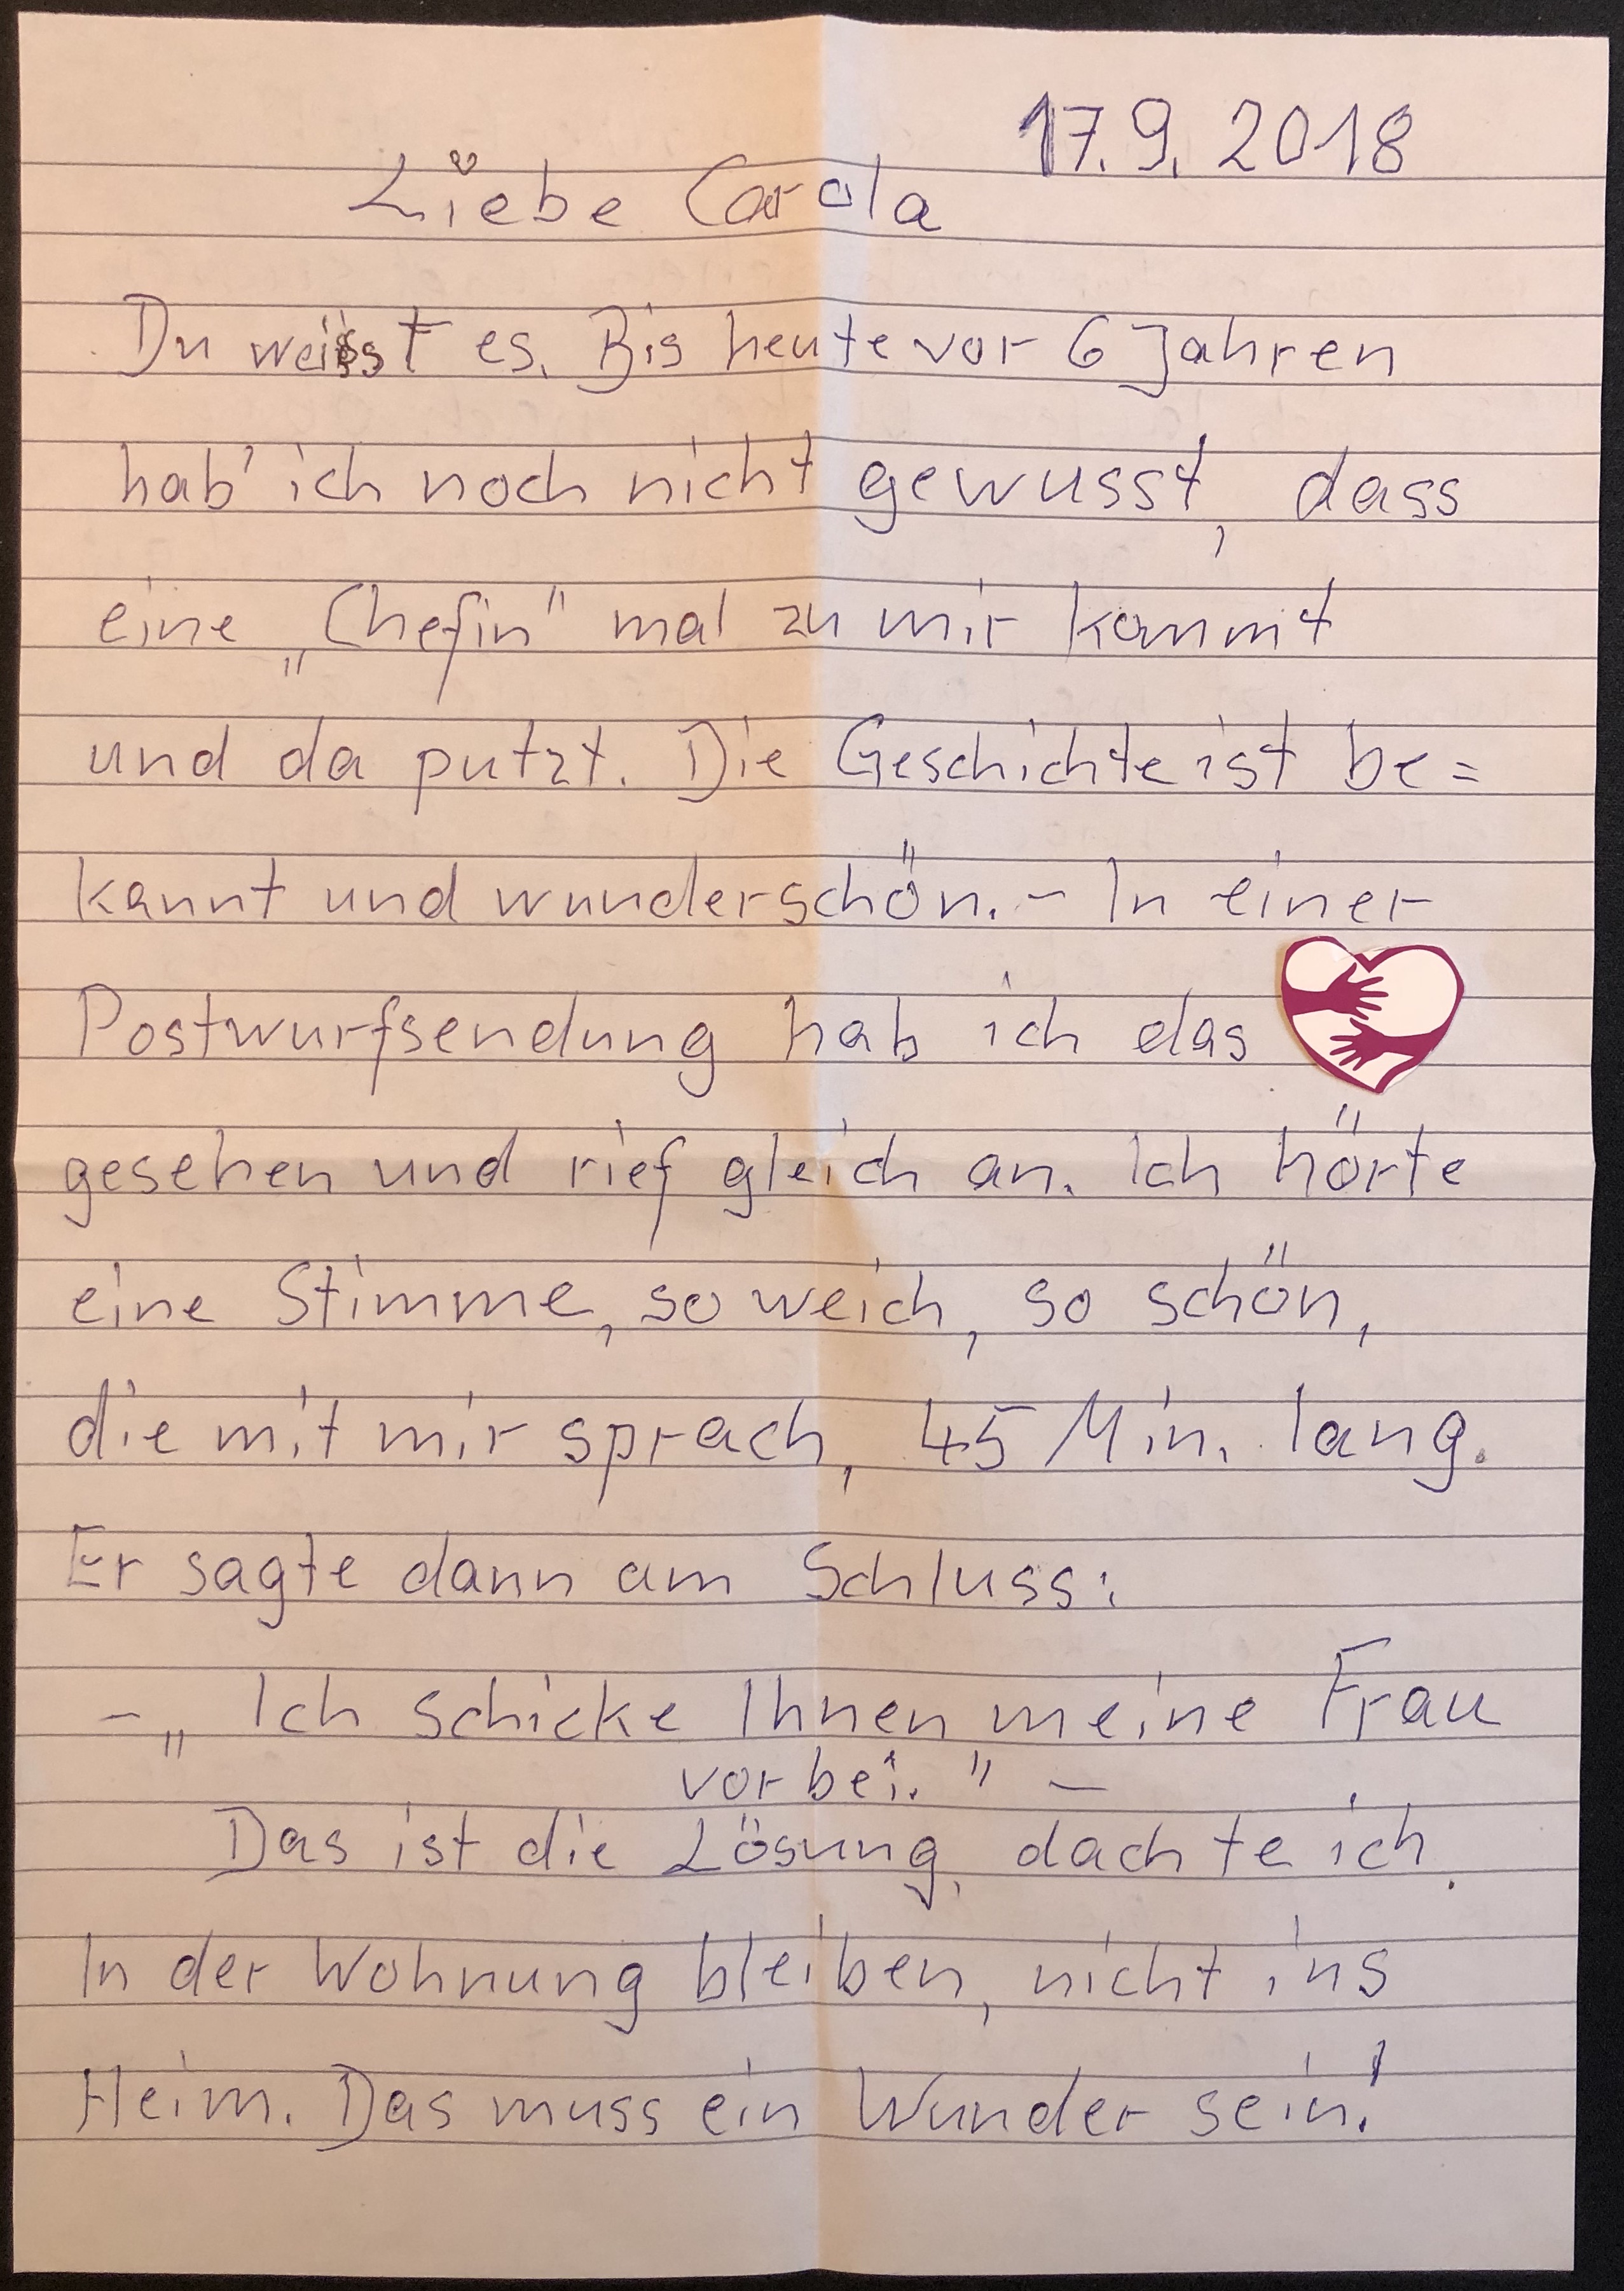 17.9.2018
Liebe Carola
Du weisst es. Bis heute vor 6 Jahren
hab' ich noch nicht gewusst, dass
eine „Chefin" mal zu mir kommt
und da putzt. Die Geschichte ist be=
kannt und wunderschön. – In einer
Postwurfsendung hab ich das
gesehen und rief gleich an. Ich hörte
eine Stimme, so weich, so schön,
die mit mir sprach, 45 Min. lang.
Er sagte dann am Schluss:
– „Ich schicke Ihnen meine Frau
vorbei." –
Das ist die Lösung, dachte ich.
In der Wohnung bleiben, nicht ins
Heim. Das muss ein Wunder sein!